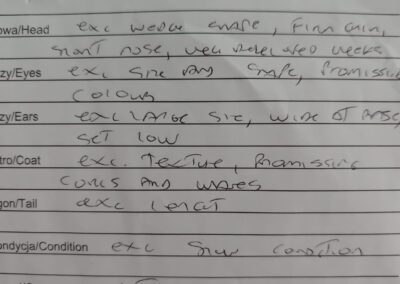 owa/Head exc wedge shape, Firm chin,
short nose, well developed cheeks
zy/Eyes exc size and shape, Promissing
colour
zy/Ears exc large size, wide at base,
set low
tro/Coat exc. texture, Promissing
corls and waves
gon/Tail exc lengt
ondycja/Condition exc show condition